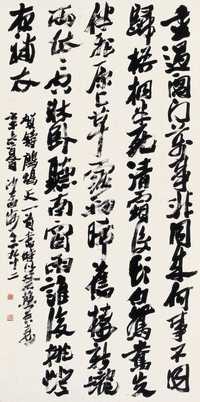 重過閶門萬事非同來何事不同
歸梧桐半死清霜後頭白鴛鴦失
伴飛原上草露初晞舊棲新壠
兩依依空牀卧聽南窗雨誰復挑燈
夜補衣
賀鑄鷓鴣天
沙孟海